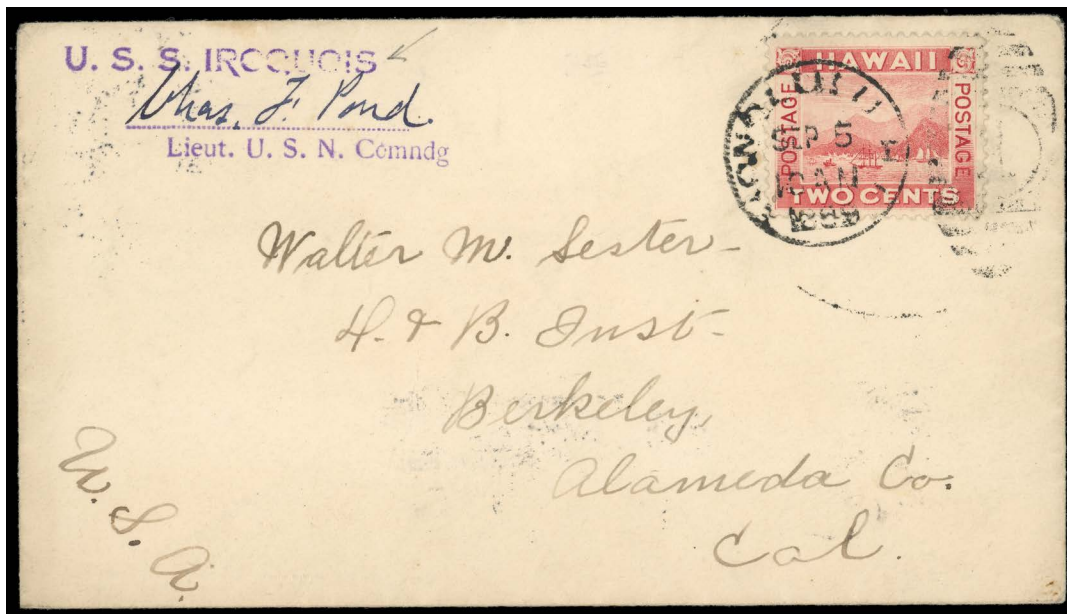 U. S. S. IROQUOIS
Chas. F. Pond.
Lieut. U. S. N. Comndg
HAWAII
POSTAGE
POSTAGE
TWO CENTS
HONOLULU
SEP 5
10 AM
Walter M. Sester
D. & B. Inst.
Berkeley,
Alameda Co.
Cal.
U. S. A.